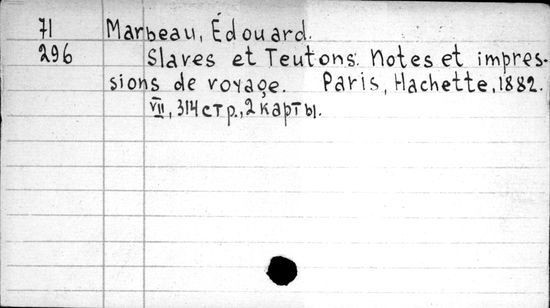 71 Marbeau, Édouard.
296 Slaves et Teutons. Notes et impres-
sions de voyage. Paris, Hachette, 1882.
VII, 314 стр., 2 карты.